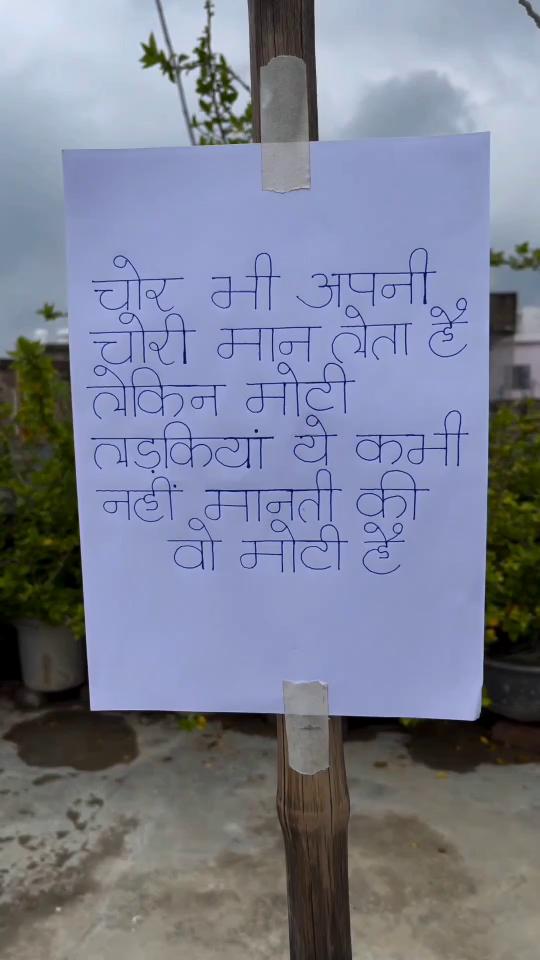 चोर भी अपनी
चोरी मान लेता है
लेकिन मोटी
लड़कियां ये कभी
नहीं मानती की
वो मोटी है